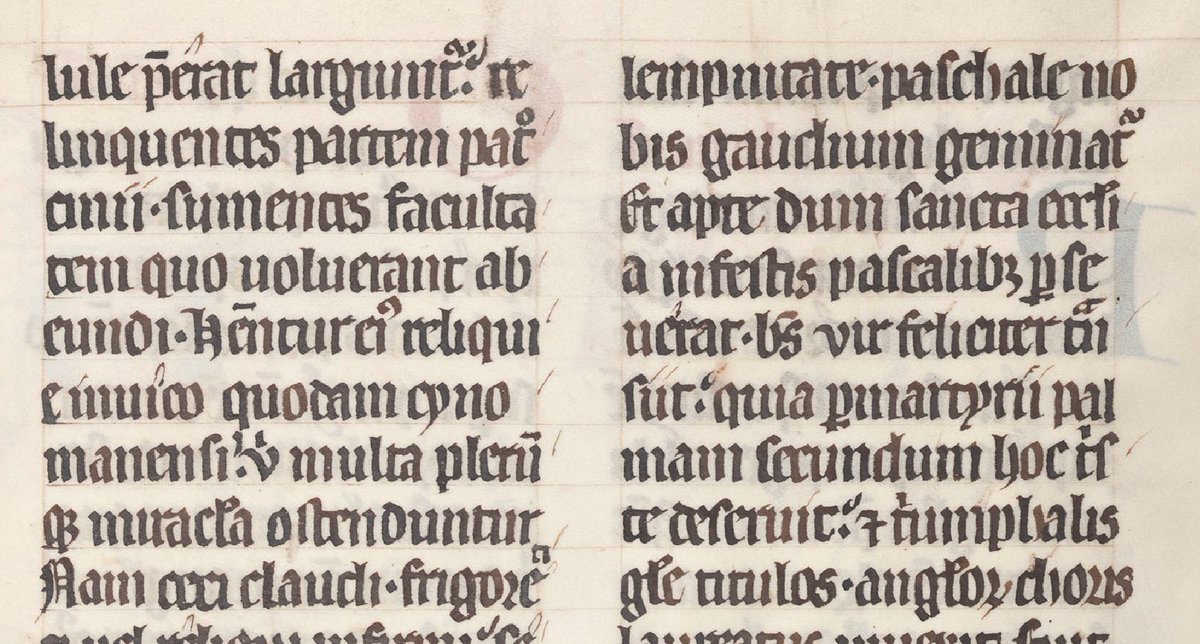 lule p̄erat largiunt᷑. re
linquentes partem patͦ
cinii · sumentes faculta
tem quo uoluerant ab
eundi · Hn̄tur eiꝰ reliqui
e in uico quodam cyno
manensi. v multa pleru̅
qꝫ miracła ostenduntur
Nam ceci claudi · frigore
lempnitate · paschale no
bis gaudium geminat᷑
Et apte dum sancta eccłi
a in festis pascalibꝫ ꝑse
uerat · bs̄ vir feliciter
siit. quia ꝑ martyrii pal
mam secundum hoc tⁱs
te deseruit. ⁊ tⁱumphalis
głe titulos · angłoꝝ choris